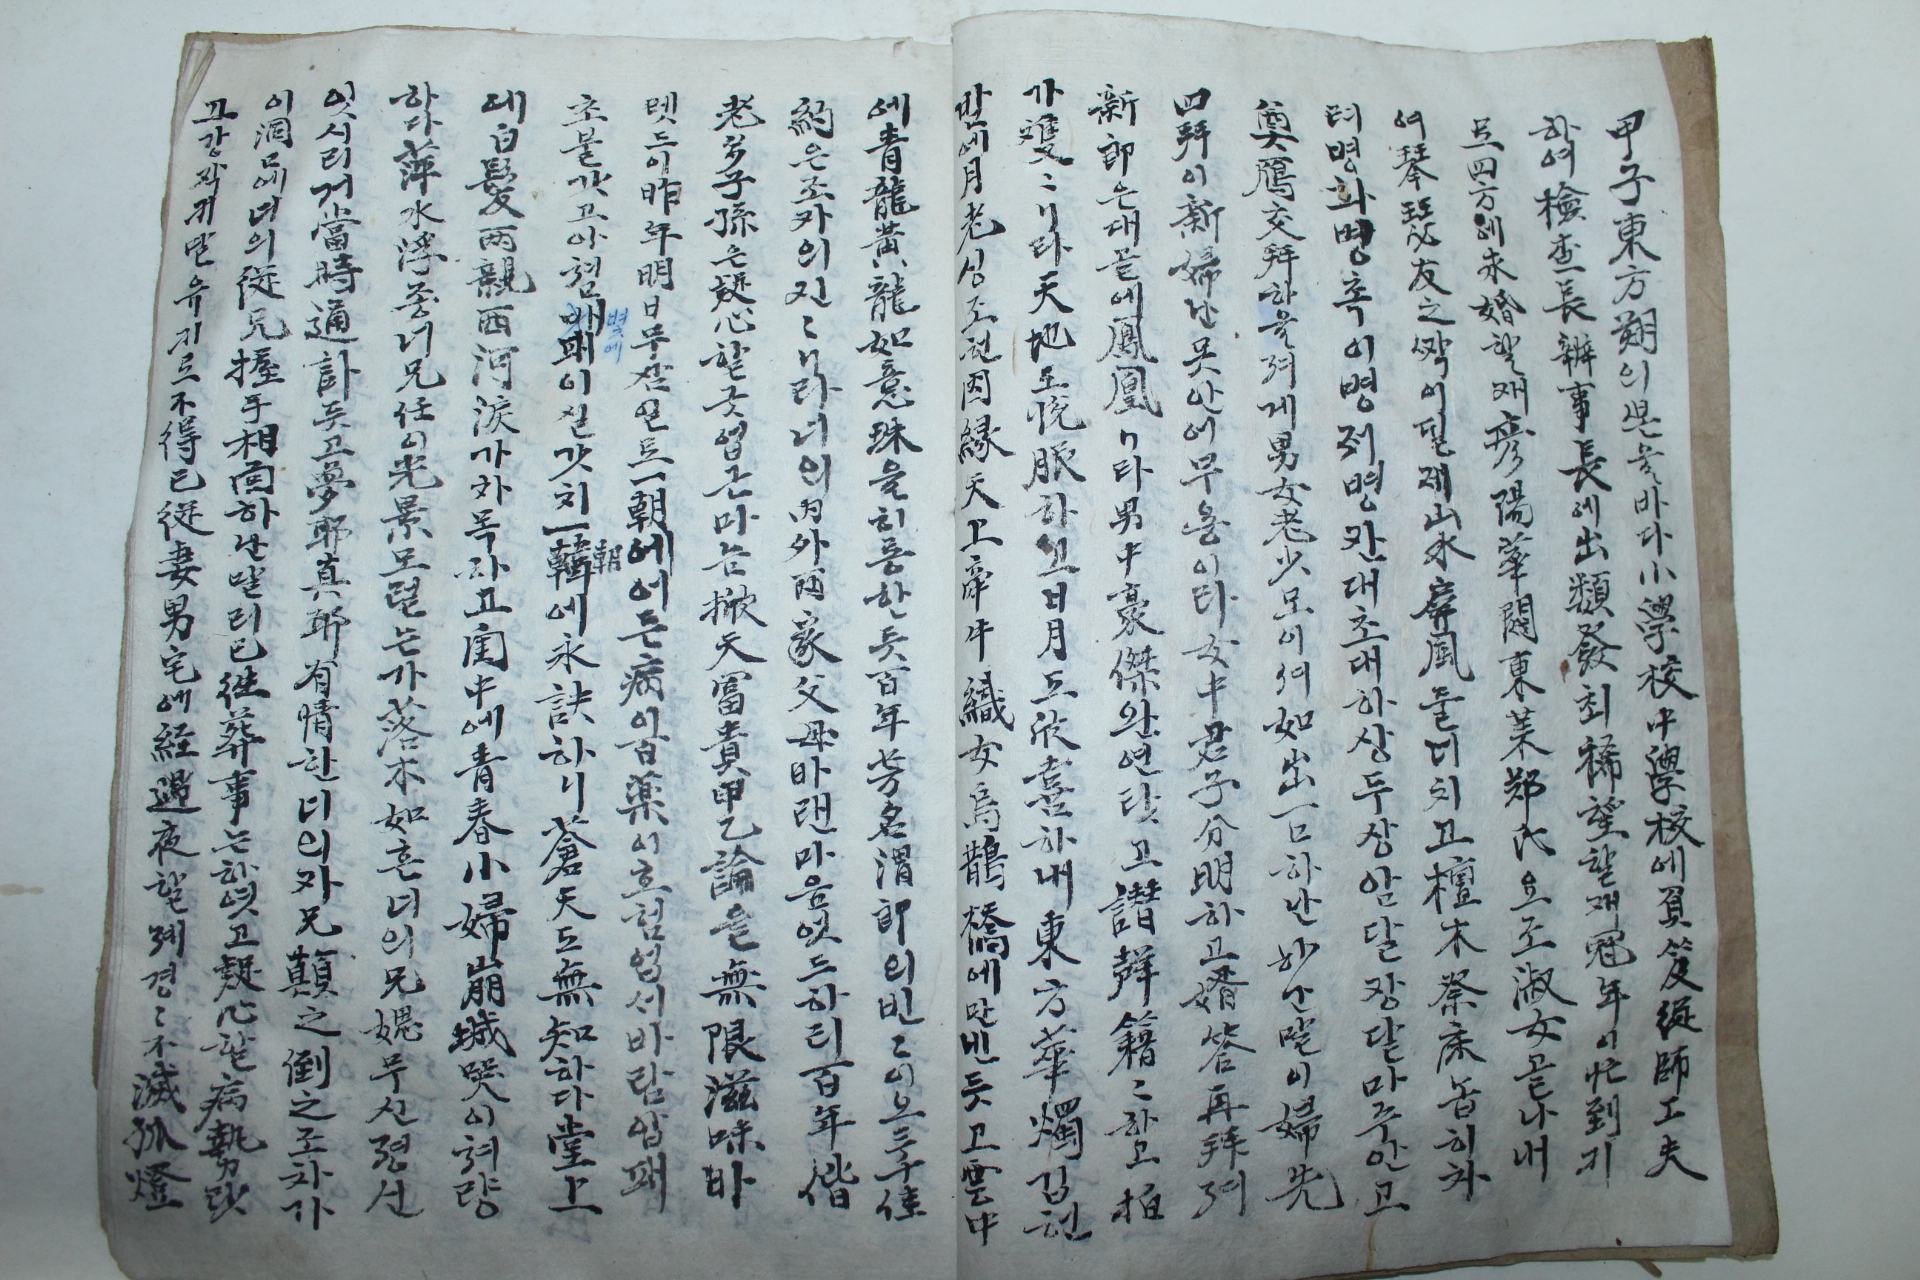 甲子東方朔의 보을바다小學校中學校에負笈從師工夫
하여檢査長辦事長에出類發최稀望할재冠年이忙到키
로四方에求婚할재彦陽華閥東萊鄭氏요조淑女골나내
여琴瑟友之짝이될제山水屛風둘너치고檀木祭床놉히차
려병화병혹이병저병칸대초대하상두상암달장달마주안고
奠鴈交拜하올져게男女老少모이여如出一口하난妙한말이婦先
四拜이新婦난못안에무울이타女中君子分明하고婚答再拜져
新郎은대골에鳳凰니타男中豪傑완연탓고讚聲籍〻하고栢
가雙〻니라天地도悅服하고日月도欣喜하내東方華燭김헌
반에月老싱조헌因緣天上牽牛織女烏鵲橋에만낸듯고雲中
에靑龍黃龍如意珠을히롱한듯百年芳名渭郎의빈〻이오등주佳
約은조카의진〻니라너의內外両家父母바랜마음엿드하터百年偕
老多子孫은疑心할긋업근마는掀天富貴甲乙論을無限滋味바
텟드이昨年明日무잠일트一朝에어든病이合藥이효험업서바람압패
초불갓고아침배패이실갓치一朝에永訣하니蒼天도無知하다堂上
벽에
에白髮両親西河淚가차목자고閨中에靑春小婦崩城哭이혀량
하다萍水浮종너兄任이光景모렬는가落木如혼너의兄媤무신령선
잇시리거當時通訃듯고夢耶眞耶有情한너의자兄顚之倒之조차가
이洞口에너의從兄握手相面하난말리已往葬事는하엿고疑心할病勢닷
고강작귀말유키로不得已從妻男宅에經過夜할제경〻不滅孤燈